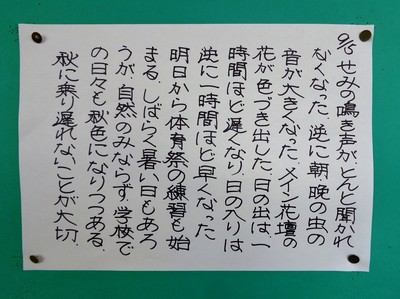 9/5 せみの鳴き声がとんと聞かれ
なくなった。逆に朝、晩の虫の
音が大きくなった。メイン花壇の
花が色づき出した。日の出は、一
時間ほど遅くなり、日の入りは
逆に一時間ほど早くなった
明日から体育祭の練習も始
まる。しばらく暑い日もあろ
うが、自然のみならず、学校で
の日々も秋色になりつつある。
秋に乗り遅れないことが大切。